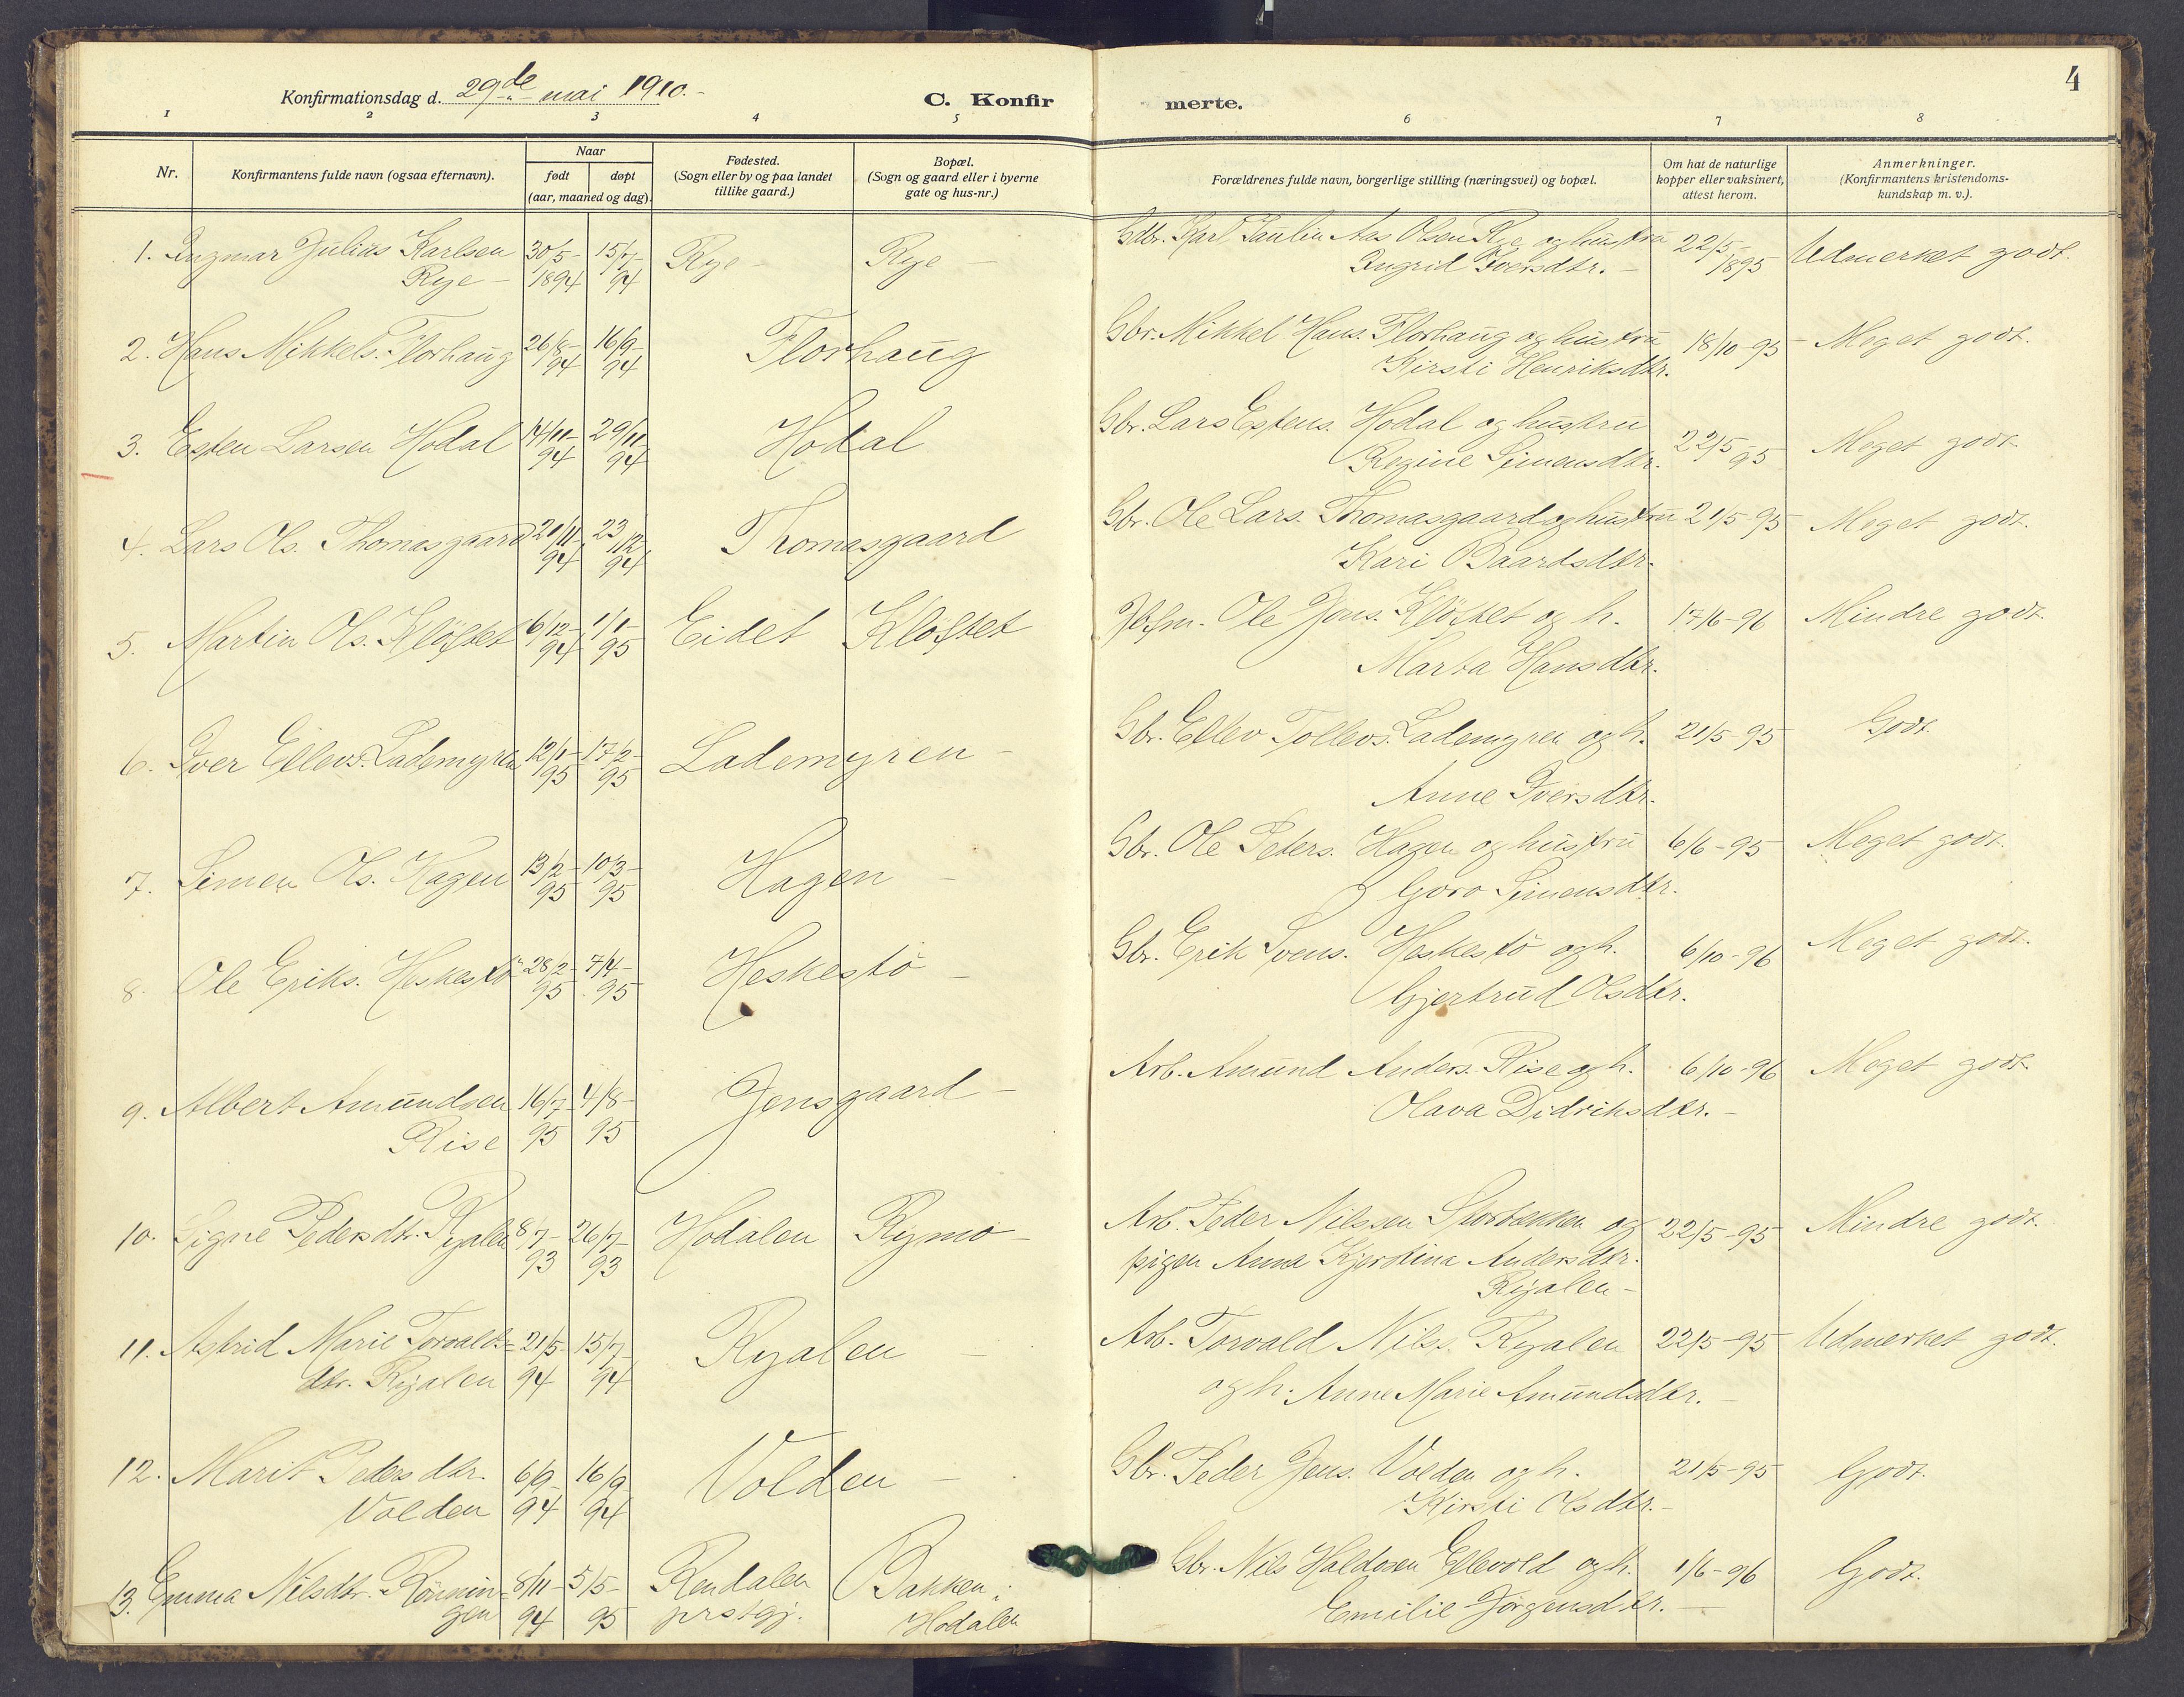 4
Konfirmationsdag d. 29de mai 1910.-
C. Konfir merte.
1 2 3 4 5 6 7 8
Nr.
Konfirmantens fulde navn (ogsaa efternavn).
Naar
født døpt
(aar, maaned og dag).
Fødested.
(Sogn eller by og paa landet
tillike gaard.)
Bopæl.
(Sogn og gaard eller i byerne
gate og hus-nr.)
Forældrenes fulde navn, borgerlige stilling (næringsvei) og bopæl.
Om hat de naturlige
kopper eller vaksinert,
attest herom.
Anmerkninger.
(Konfirmantens kristendoms-
kundskap m. v.).
1. Ingmar Julius Karlsen 30/5- 15/7- Rye - Rye - Gdbr. Karl Paulin Aas Olsen Rye og hustru 22/5- Udmerket godt.
Rye - 1894 94 Ingrid Iversdtr. - 1895
2. Hans Mikkels. Florhaug 26/8- 16/9- Florhaug Gbr. Mikkel Hans. Florhaug og hustru 18/10-95 Meget godt.
94 94 Kirsti Henriksdtr.
3. Esten Larsen Hodal 14/11- 29/11- Hodal Gbr. Lars Estens. Hodal og hustru 22/5-95 Meget godt.
94 94 Regine Simensdtr.
4. Lars Ols. Thomasgaard 20/11 23/12 Thomasgaard Gbr. Ole Lars. Thomasgaard og hustru 21/5-95 Meget godt.
94 94 Kari Baardsdtr.
5. Martin Ols. Kløftet 6/12- 1/1- Eidet Kløftet Ole Jens. Kløftet og h. 17/6-96 Mindre godt.
94 95 Marta Hansdtr.
6. Iver Ellevs. Lademyren 12/1- 17/2- Lademyren - Gbr. Ellev Tollevs. Lademyren og h. 21/5-95 Godt.
95 95 Anne Iversdtr.
7. Simen Ols. Hagen 13/2- 10/3- Hagen - Gbr. Ole Peders. Hagen og hustru 6/6-95 Meget godt.
95 95 Goro Simensdtr.
8. Ole Eriks. Heskestø 28/2- 7/4- Heskestø - Gbr. Erik Svens. Heskestø og h. 6/10-96 Meget godt.
95 95 Gjertrud Olsdtr.
9. Albert Amundsen 16/7- 4/8- Jensgaard - Arb. Amund Anders. Rise og h. 6/10-96 Meget godt.
Rise 95 95 Olava Didriksdtr. -
10. Signe Pedersdtr. Ryalen 8/7- 26/7- Hodalen Rymo - Arb. Peder Nilssen Storbekken og 22/5-95 Mindre godt.
93 93 pigen Anna Kjerstina Andersdtr.
Ryalen -
11. Astrid Marie Torvalds= 21/5- 15/7- Ryalen - Arb. Torvald Nils. Ryalen 22/5-95 Udmerket godt.
dtr. Ryalen 94 94 og h. Anne Marie Amundsdtr. -
12. Marit Pedersdtr. 6/9- 16/9- Volden - Gbr. Peder Jens. Volden og h. 21/5-95 Godt.
Volden 94 94 Kirsti Olsdtr. -
13. Emma Nilsdtr. Rønnin= 8/11- 5/5- Rendalen Bakken i Gbr. Nils Haldosen Ellevold og h. 1/6-96 Godt.
gen 94 95 prstgj. Hodalen Emilie Jørgensdtr. -